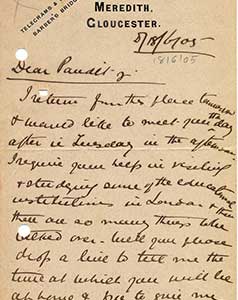 TELEGRAMS &
BARBER'S BRIDGE
MEREDITH,
GLOUCESTER.
8/18/6/05
18/6/05
Dear Pandit-ji
I return from this place tomorrow
& would like to meet you the day
after i.e. Tuesday in the afternoon
I require your help in visiting
& studying some of the educational
institutions in London & then
there are so many things to be
talked over - Will you please
drop a line to tell me the
time at which you will be
at home &
give me